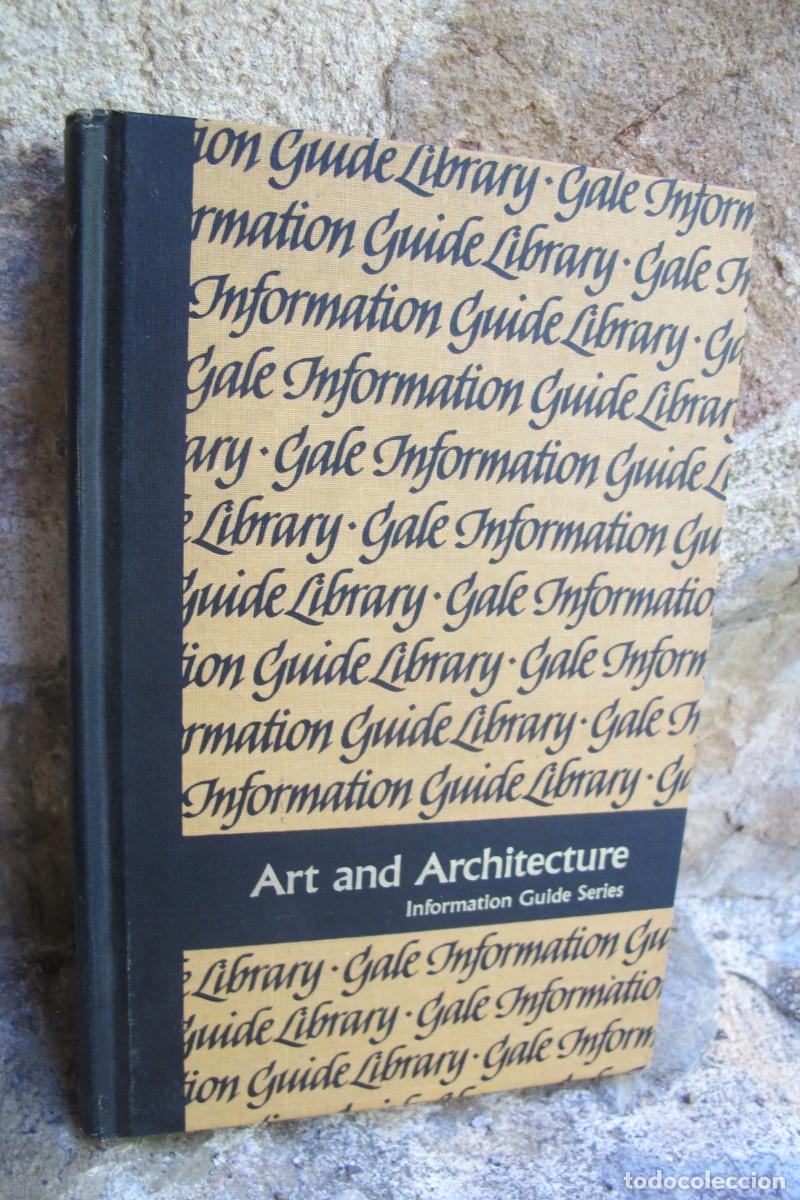 ion Guide Library · Gale Inform
rmation Guide Library · Gale In
Information Guide Library · Ga
Gale Information Guide Librar
ary · Gale Information Guide L
e Library · Gale Information Gu
Guide Library · Gale Informatio
tion Guide Library · Gale Inform
rmation Guide Library · Gale In
Information Guide Library · Ga
Art and Architecture
Information Guide Series
e Library · Gale Information Gu
Guide Library · Gale Informatio
tion Guide Library · Gale Inform
todocoleccion